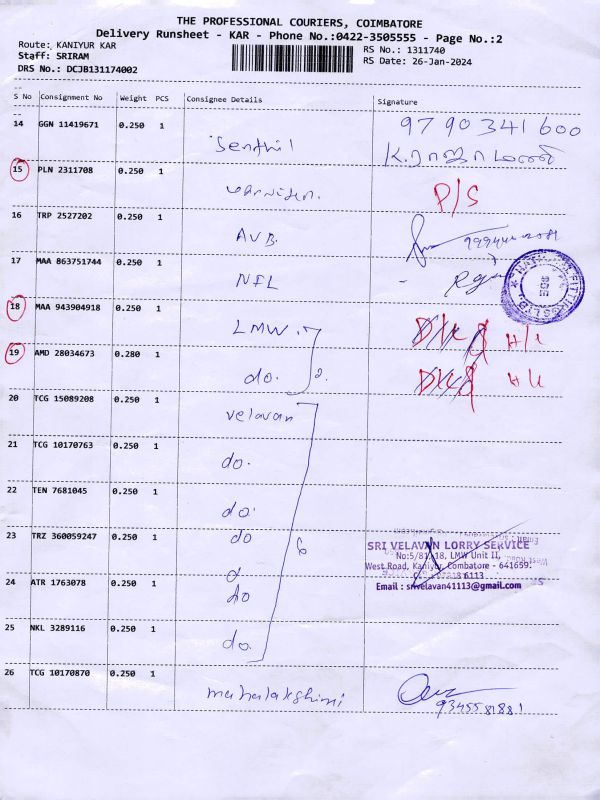 THE PROFESSIONAL COURIERS, COIMBATORE
Delivery Runsheet - KAR - Phone No.:0422-3505555 - Page No.:2
Route: KANIYUR KAR
RS No.: 1311740
Staff: SRIRAM
RS Date: 26-Jan-2024
DRS No.: DCJB131174002
S No Consignment No Weight PCS Consignee Details Signature
14 GGN 11419671 0.250 1 Senthil 9790341600
15 PLN 2311708 0.250 1 P/S
16 TRP 2527202 0.250 1 AVB.
17 MAA 863751744 0.250 1 NFL
18 MAA 943904918 0.250 1 LMW. D/L H/L
19 AMD 28034673 0.280 1 do. 2. D/L H/L
20 TCG 15089208 0.250 1 velavan
21 TCG 10170763 0.250 1 do.
22 TEN 7681045 0.250 1 do.
23 TRZ 360059247 0.250 1 do 6
SRI VELAVAN LORRY SERVICE
No:5/81, 18, LMW Unit II,
West Road, Kaniyur, Combatore - 641659.
Email : srivelavan41113@gmail.com
24 ATR 1763078 0.250 1 do
25 NKL 3289116 0.250 1 do.
26 TCG 10170870 0.250 1 mahalakshimi
9345581881